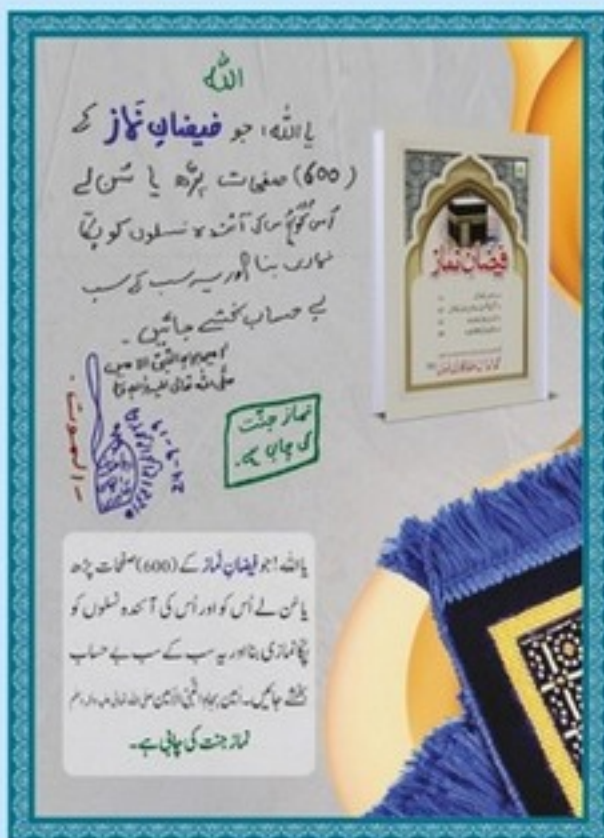 اللہ
یااللہ! جو فیضانِ نماز کے
(600) صفحات پڑھ یا سُن لے
اُس کو اُس کی آئندہ نسلوں کو پکّا
نمازی بنا اور یہ سب کے سب
بے حساب بخشے جائیں۔
اٰمین بجاہ النبیّ الامین
صلَّی اللہ تعالٰی علیہ واٰلہ وسلَّم
نماز جنّت
کی چابی ہے۔
فیضانِ نماز
یااللہ! جو فیضانِ نماز کے (600) صفحات پڑھ
یا سُن لے اُس کو اور اُس کی آئندہ نسلوں کو
پکّا نمازی بنا اور یہ سب کے سب بے حساب
بخشے جائیں۔ اٰمین بجاہِ النّبیِّ الْاَمین صلی اللہ تعالٰی علیہ واٰلہ وسلم
نماز جنت کی چابی ہے۔